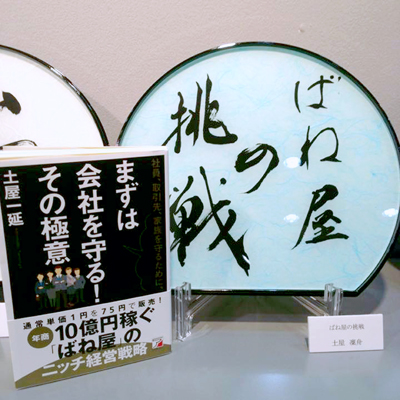 ばね屋
の
挑戦
社員、取引先、家族を守るために。
まずは
会社を守る!
その極意
土屋一延
通常単価1円を75円で販売!
年商
10億円稼ぐ
「ばね屋」の
ニッチ経営戦略
ばね屋の挑戦
土屋